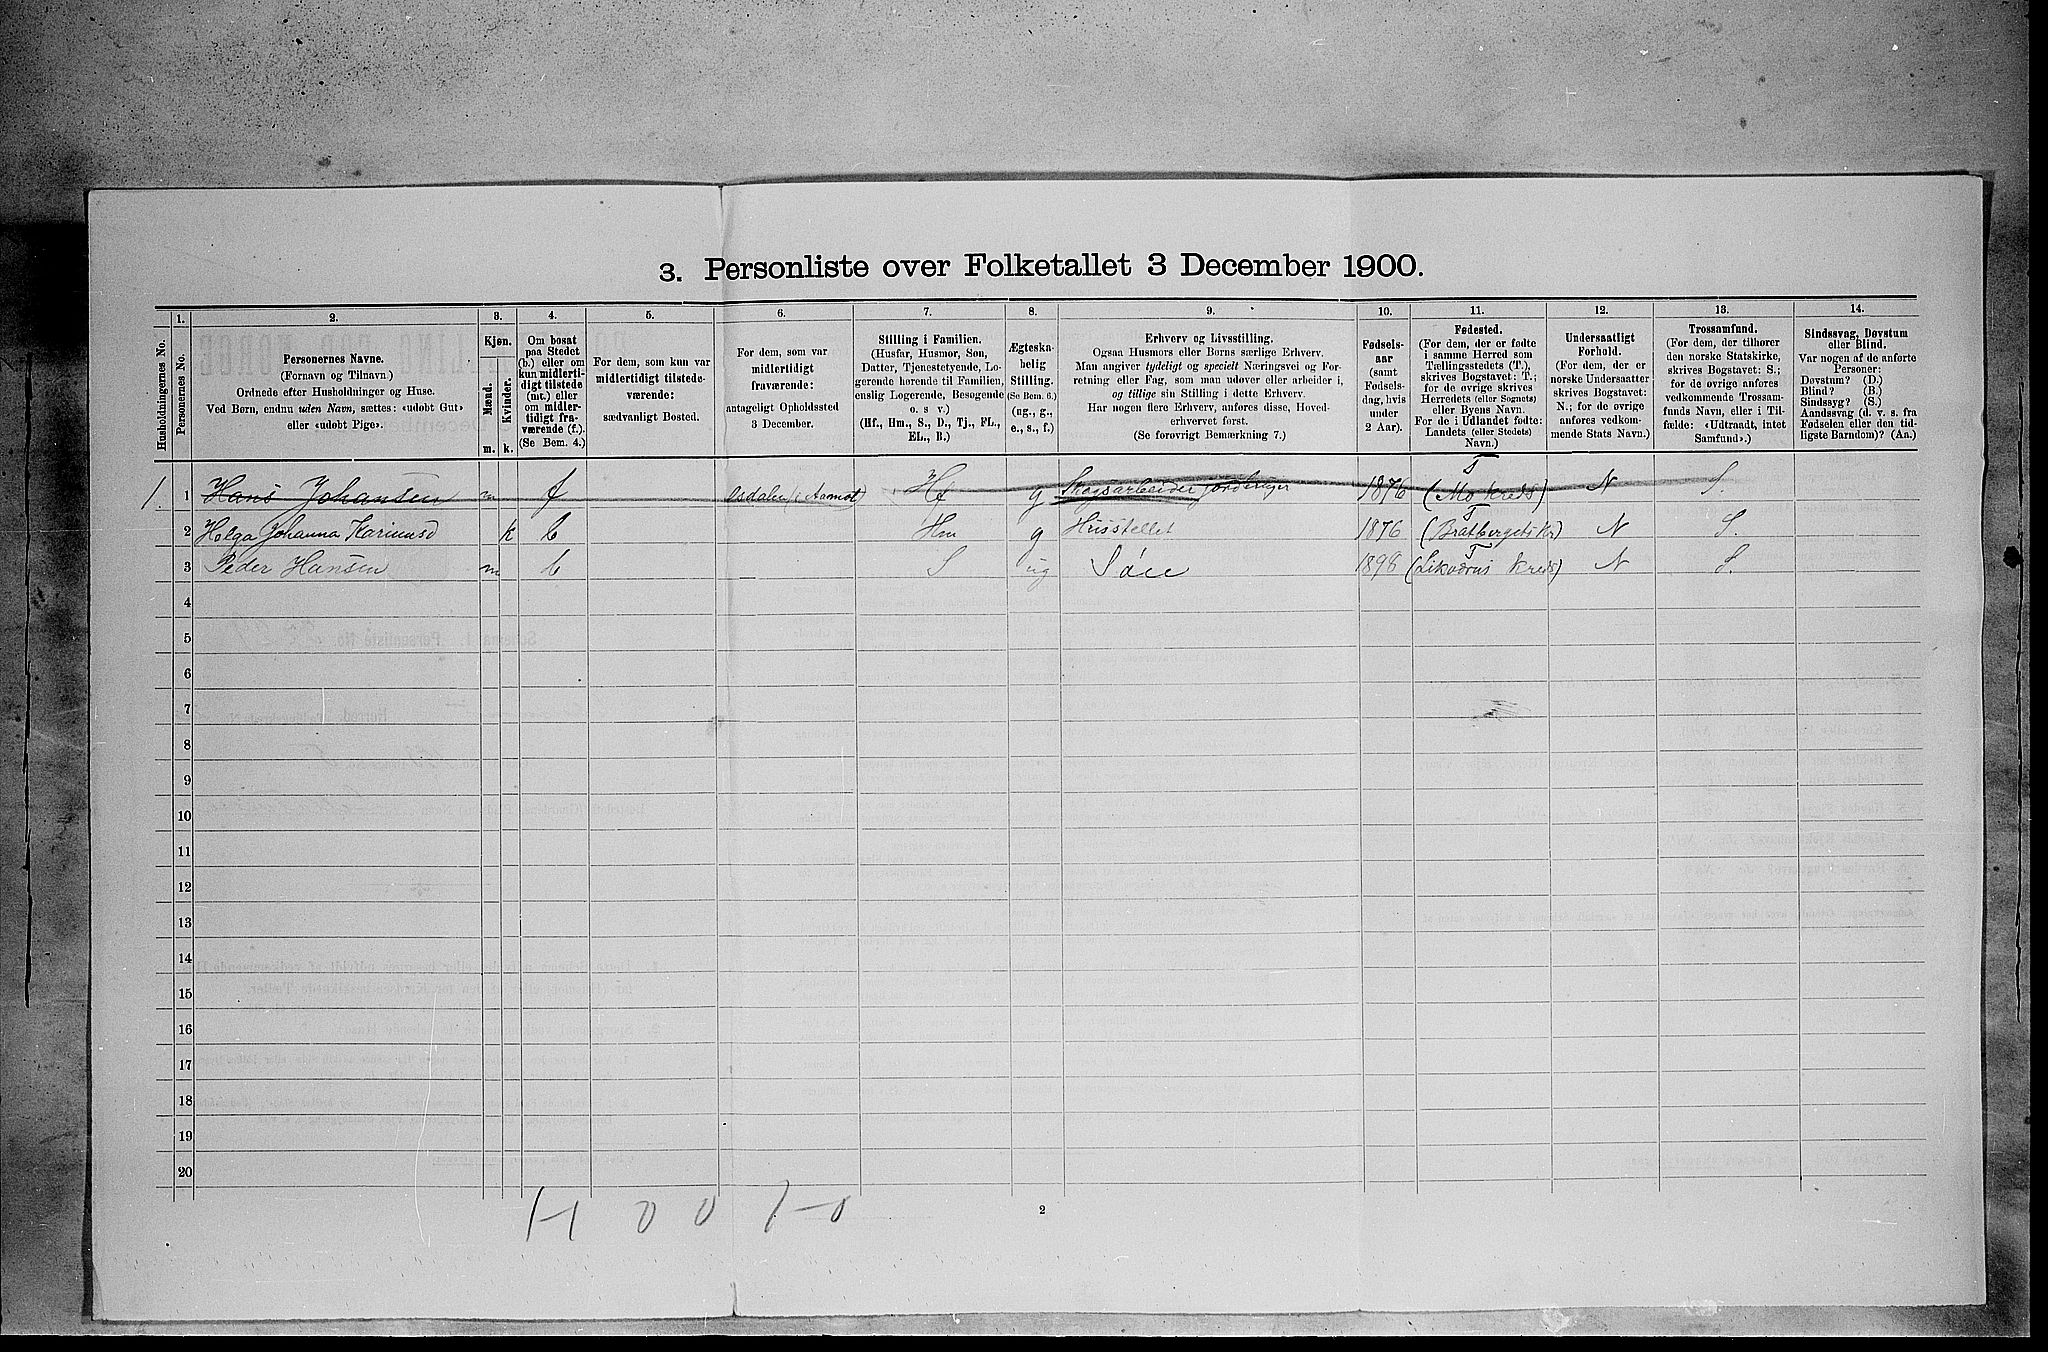 3. Personliste over Folketallet 3 December 1900.
Husholdningernes No.
1.
Personernes No.
2.
Personernes Navne.
(Fornavn og Tilnavn.)
Ordnede efter Husholdninger og Huse.
Ved Børn, endnu uden Navn, sættes: «udøbt Gut»
eller «udøbt Pige».
3.
Kjøn.
Mænd.
Kvinder.
m. k.
4.
Om bosat
paa Stedet
(b.) eller om
kun midlerti-
digt tilstede
(mt.) eller
om midler-
tidigt fra-
værende (f.).
(Se Bem. 4.)
5.
For dem, som kun var
midlertidigt tilstede-
værende:
sædvanligt Bosted.
6.
For dem, som var
midlertidigt
fraværende:
antageligt Opholdssted
3 December.
7.
Stilling i Familien.
(Husfar, Husmor, Søn,
Datter, Tjenestetyende, Lo-
gerende hørende til Familien,
enslig Logerende, Besøgende
o. s v.)
(Hf., Hm., S., D., Tj., FL.,
EL., B.)
8.
Ægteska-
belig
Stilling.
(Se Bem. 6.)
(ug., g.,
e., s., f.)
9.
Erhverv og Livsstilling.
Ogsaa Husmors eller Børns særlige Erhverv.
Man angiver tydeligt og specielt Næringsvei og For-
retning eller Fag, som man udøver eller arbeider i,
og tillige sin Stilling i dette Erhverv.
Har nogen flere Erhverv, anføres disse, Hoved-
erhvervet først.
(Se forøvrigt Bemærkning 7.)
10.
Fødsels-
aar
(samt
Fødsels-
dag, hvis
under
2 Aar).
11.
Fødested.
(For dem, der er fødte
i samme Herred som
Tællingsstedets (T.),
skrives Bogstavet: T.;
for de øvrige skrives
Herredets (eller Sognets)
eller Byens Navn.
For de i Udlandet fødte:
Landets (eller Stedets)
Navn.)
12.
Undersaatligt
Forhold.
(For dem, der er
norske Undersaatter
skrives Bogstavet:
N.; for de øvrige
anføres vedkom-
mende Stats Navn.)
13.
Trossamfund.
(For dem, der tilhører
den norske Statskirke,
skrives Bogstavet: S.;
for de øvrige anføres
vedkommende Trossam-
funds Navn, eller i Til-
fælde: «Udtraadt, intet
Samfund».)
14.
Sindssvag, Døvstum
eller Blind.
Var nogen af de anførte
Personer:
Døvstum? (D.)
Blind? (B.)
Sindssyg? (S.)
Aandssvag (d. v. s. fra
Fødselen eller den tid-
ligste Barndom)? (Aa.)
1. 1 Hans Johansen m f Osdalen (Aamot) Hf g Skogsarbeider 1876 T (Mo kreds) N S.
2 Helga Johanna Karinusd k b Hm g Husstellet 1876 T (Bratbergets kr) N S.
3 Peder Hansen m b S ug Søn 1898 T (Likværns Kreds) N S.
4
5
6
7
8
9
10
11
12
13
14
15
16
17
18
19
20
1-1 0 0 1-0
2